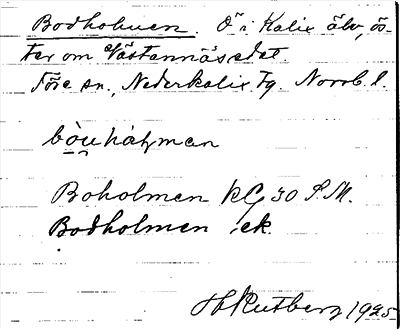 Bodholmen. Ö i Kalix älv, ös-
ter om Västannäsedet.
Töre sn., Nederkalix tg. Norrb. l.
Boholmen kG 30 S.M.
Bodholmen ek.
H Rutberg 1925